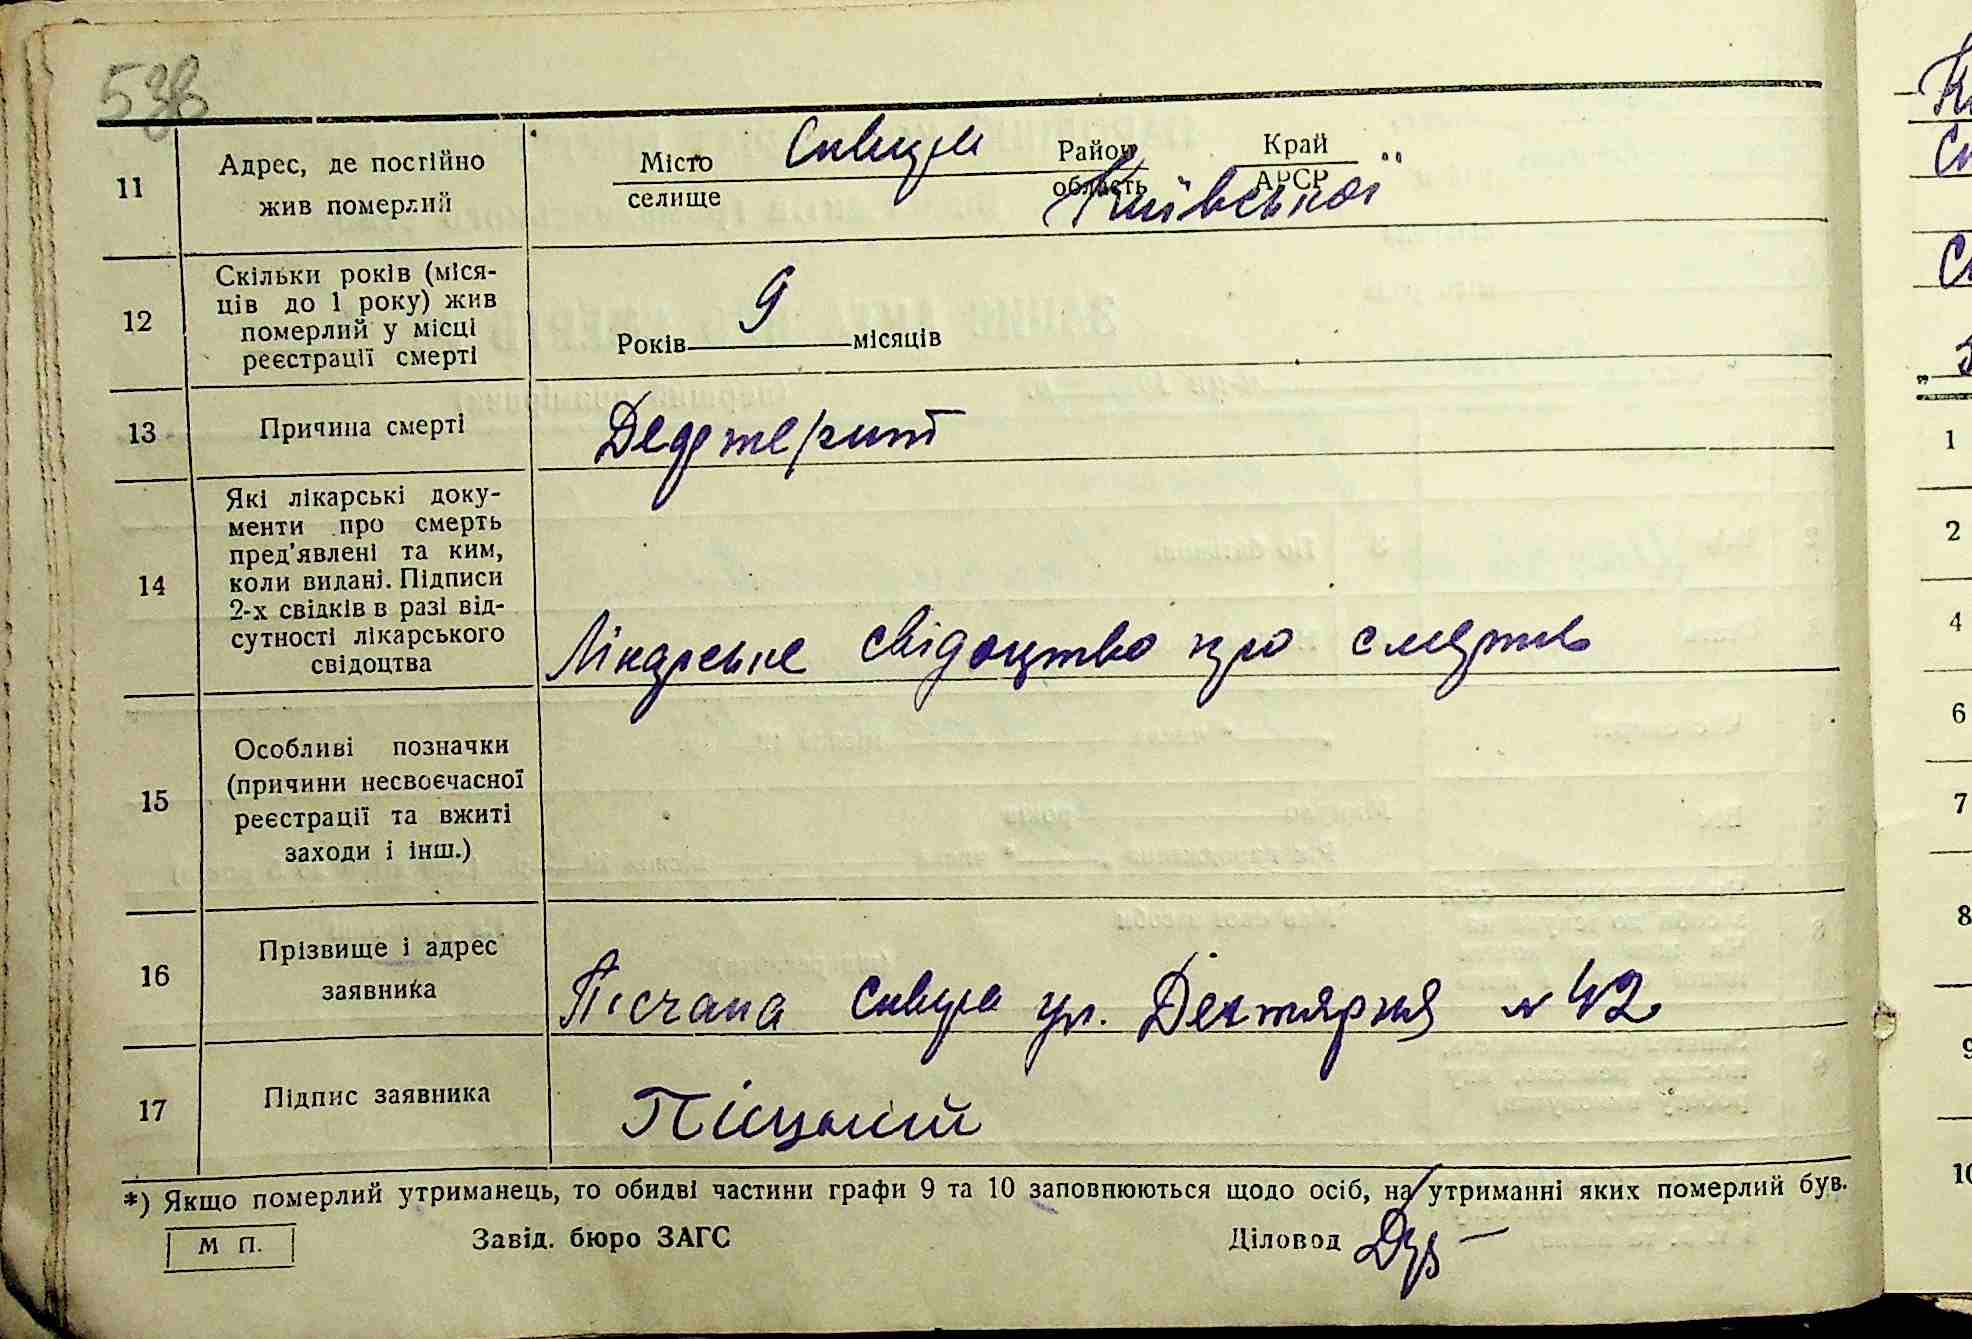 538
11
Адрес, де постійно
жив померлий
Місто
селище
Сквира
Район
область
Київської
Край
АРСР
12
Скільки років (міся-
ців до 1 року) жив
померлий у місці
реєстрації смерті
Років 9 місяців
13
Причина смерті
14
Які лікарські доку-
менти про смерть
пред'явлені та ким,
коли видані. Підписи
2-х свідків в разі від-
сутності лікарського
свідоцтва
Лікарське свідоцтво про смерть
15
Особливі позначки
(причини несвоєчасної
реєстрації та вжиті
заходи і інш.)
16
Прізвище і адрес
заявника
Пісчана Сквира ул. Дехтярня № 42
17
Підпис заявника
*) Якщо померлий утриманець, то обидві частини графи 9 та 10 заповнюються щодо осіб, на утриманні яких померлий був.
М П.
Завід. бюро ЗАГС
Діловод
1
2
4
6
7
8
9
10